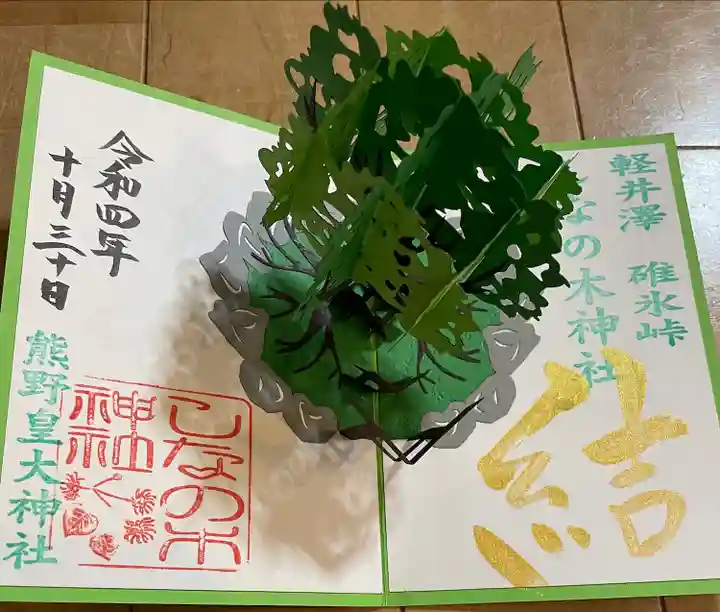 軽井澤 碓氷峠
しなの木神社
結
令和四年
十月三十日
熊野皇大神社
しなの木
神社